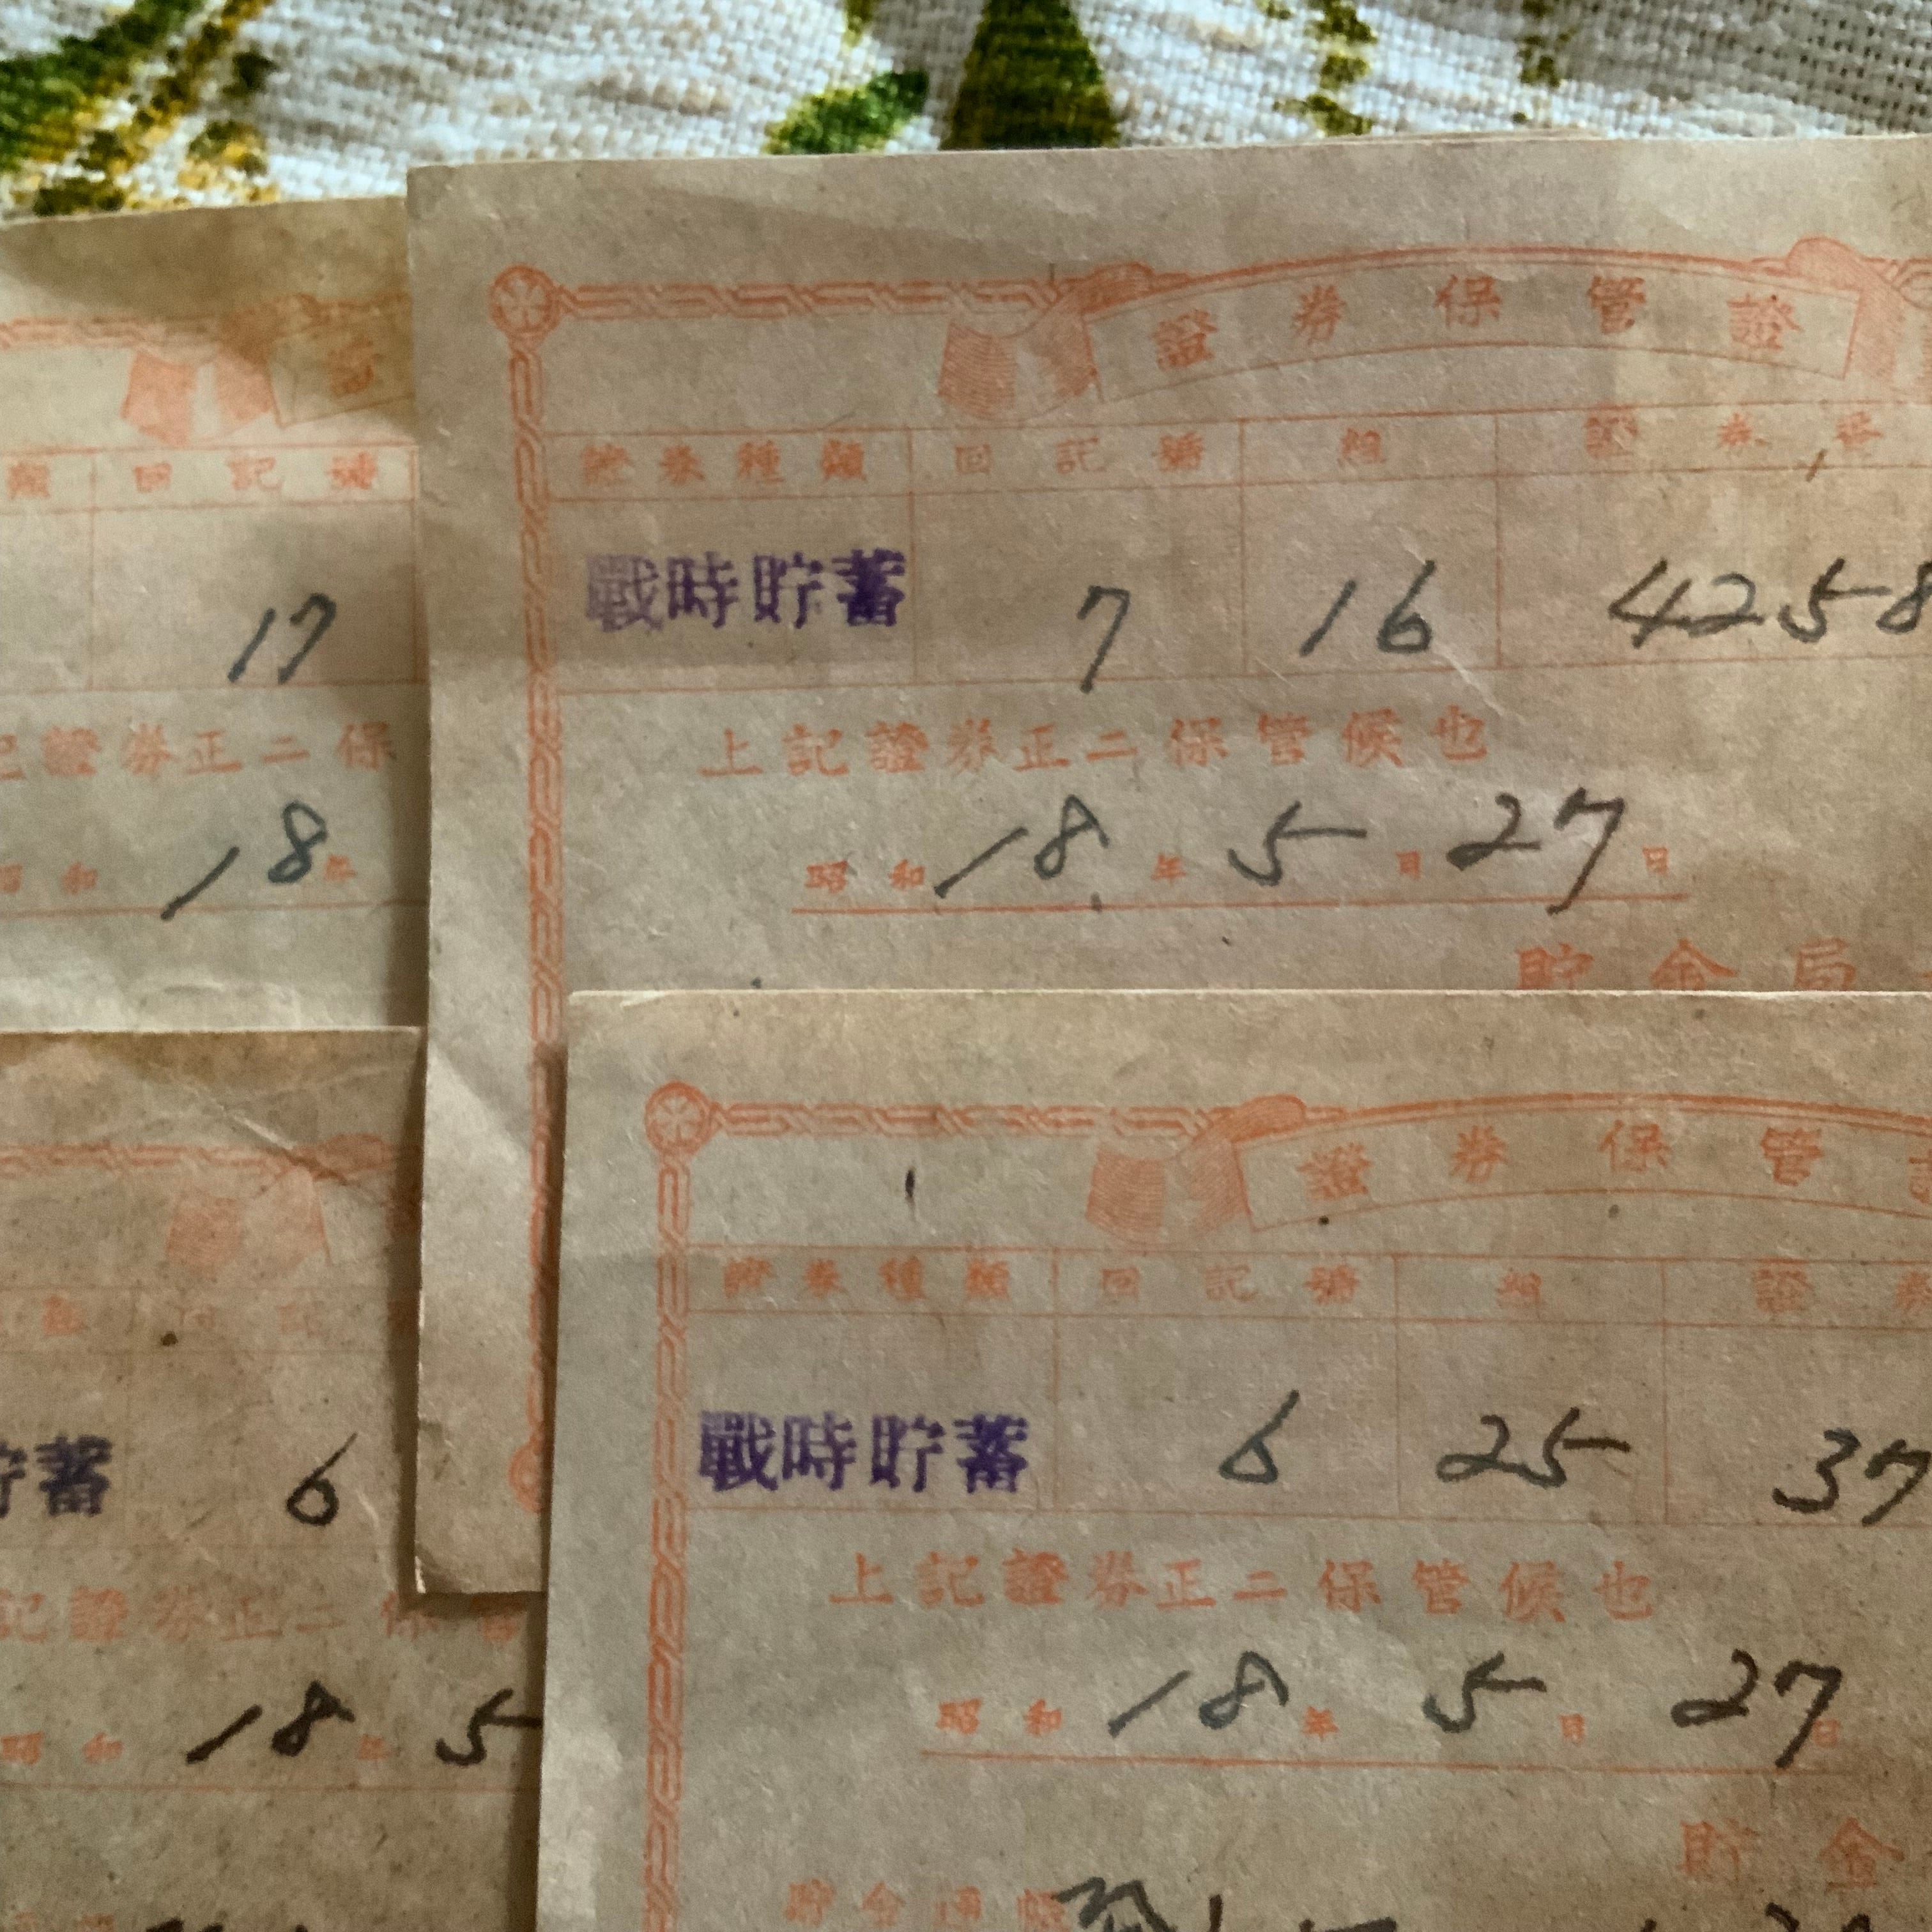 證券保管證
證券種類 回記號 組 證券番
戰時貯蓄 7 16 4258
上記證券正ニ保管候也
昭和18年5月27日
貯金局
回記號
17
記證券正ニ保
昭和18年
證券保管
證券種類 回記號 組 證券
戰時貯蓄 6 25 37
上記證券正ニ保管候也
昭和18年5月27日
貯金
貯金通帳
貯蓄 6
記證券正ニ保管
昭和18年5